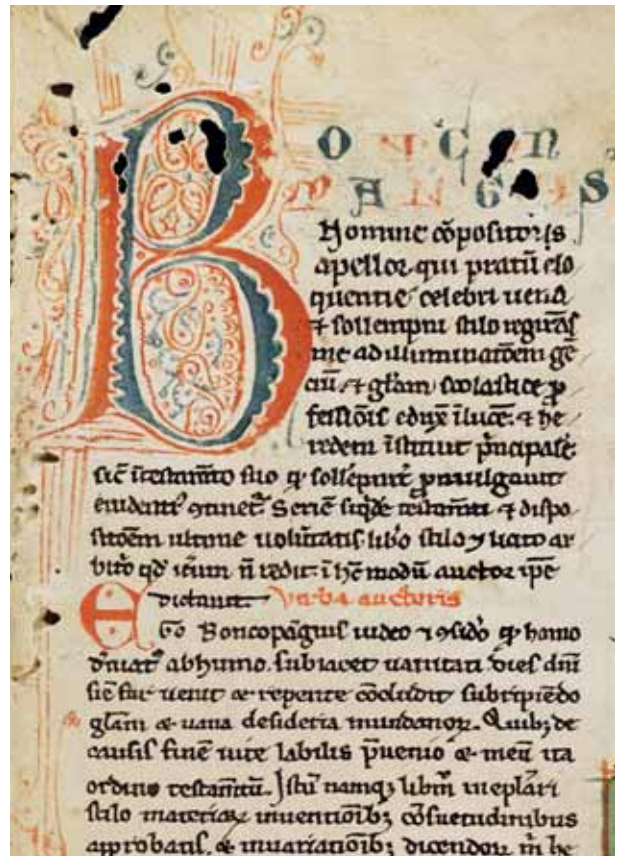 B ON C N
PANG S
Nomine cōpositoris
apellor. qui pratū elo
quentie celebri uena
⁊ sollempni stilo
me ad illuminatōem gē
ciū. ⁊ gl̄am scolastice ꝓ
fessiōis ī lucē. ⁊ he
redem īstituit p̄ncipalē
sic̄ ī testam̄to suo ꝙ sollēpnit̄ promulgauit
euident᾽ ꝯtinet᾽. Seriē siq̄dē testam̄ti ⁊ dispo
sitōem ultime uolūtatis. lib̄o stilo ⁊ ar
bit᾽o qd᾽ n̄ redit. ī hc̄ modū auctor ip̄e
dictauit. Verba auctoris
EGo Boncopāgnus uideo ⁊ ꝯsid᾽o ꝙ homo
abhumo. subiacet uanitati dies dn̄i
sic̄ fur uenit ⁊ repente cōcludit subripiēdo
gl̄am ⁊ uana desideria mundanoꝝ. Quibꝫ de
causis finē uite labilis p̄uenio ⁊ meū ita
ordino testam̄tū. Istū namqꝫ libr̄m
stilo materiaꝝ inuentiōibꝫ cōsuetudinibus
aprobatis. ⁊ inuariatiōibꝫ dicendoꝝ m̄ he